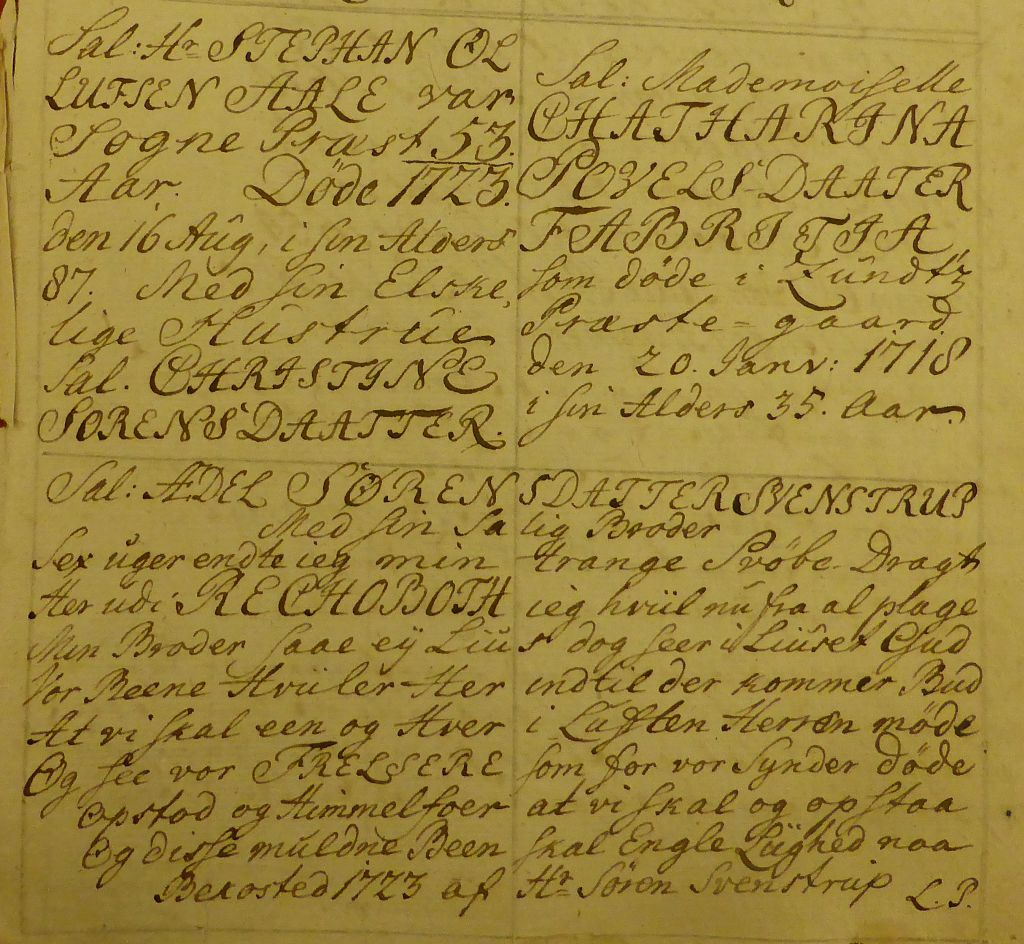 Sal: Hr STEPHAN OL
LUFSEN AALE var
Sogne Præst 53.
Aar. Døde 1723.
den 16 Aug, i sin Alders
87. Med sin Elske,
lige Hustrue
Sal. CHRISTINE
SORENS DAATTER.
Sal: Mademoiselle
CHATHARINA
POVELS-DAATER
FABRITIA,
som døde i Lundtz
Præste-gaard
den 20. Janv: 1718
i sin Alders 35. Aar.
Sal: ÆDEL SØREN SDATTER SVENSTRUP
Med sin Sa lig Broder
Sex uger endte ieg min trange Svøbe-Dragt
Her udi RECHOBOTH ieg hviil nu fra al plage
Min Broder saae ey Liu s dog seer i Liuset Gud
Vor Beene Hviiler Her indtil der kommer Bud
At vi skal een og Hver i Luften Herren møde
Og see vor FRELSERE som for vor Synder døde
opstod og Himmelfoer at vi skal og opstaa
Og disse muldne Been skal Engle Liighed naa
Bekosted 1723 af Hr Søren Svenstrup L.P.